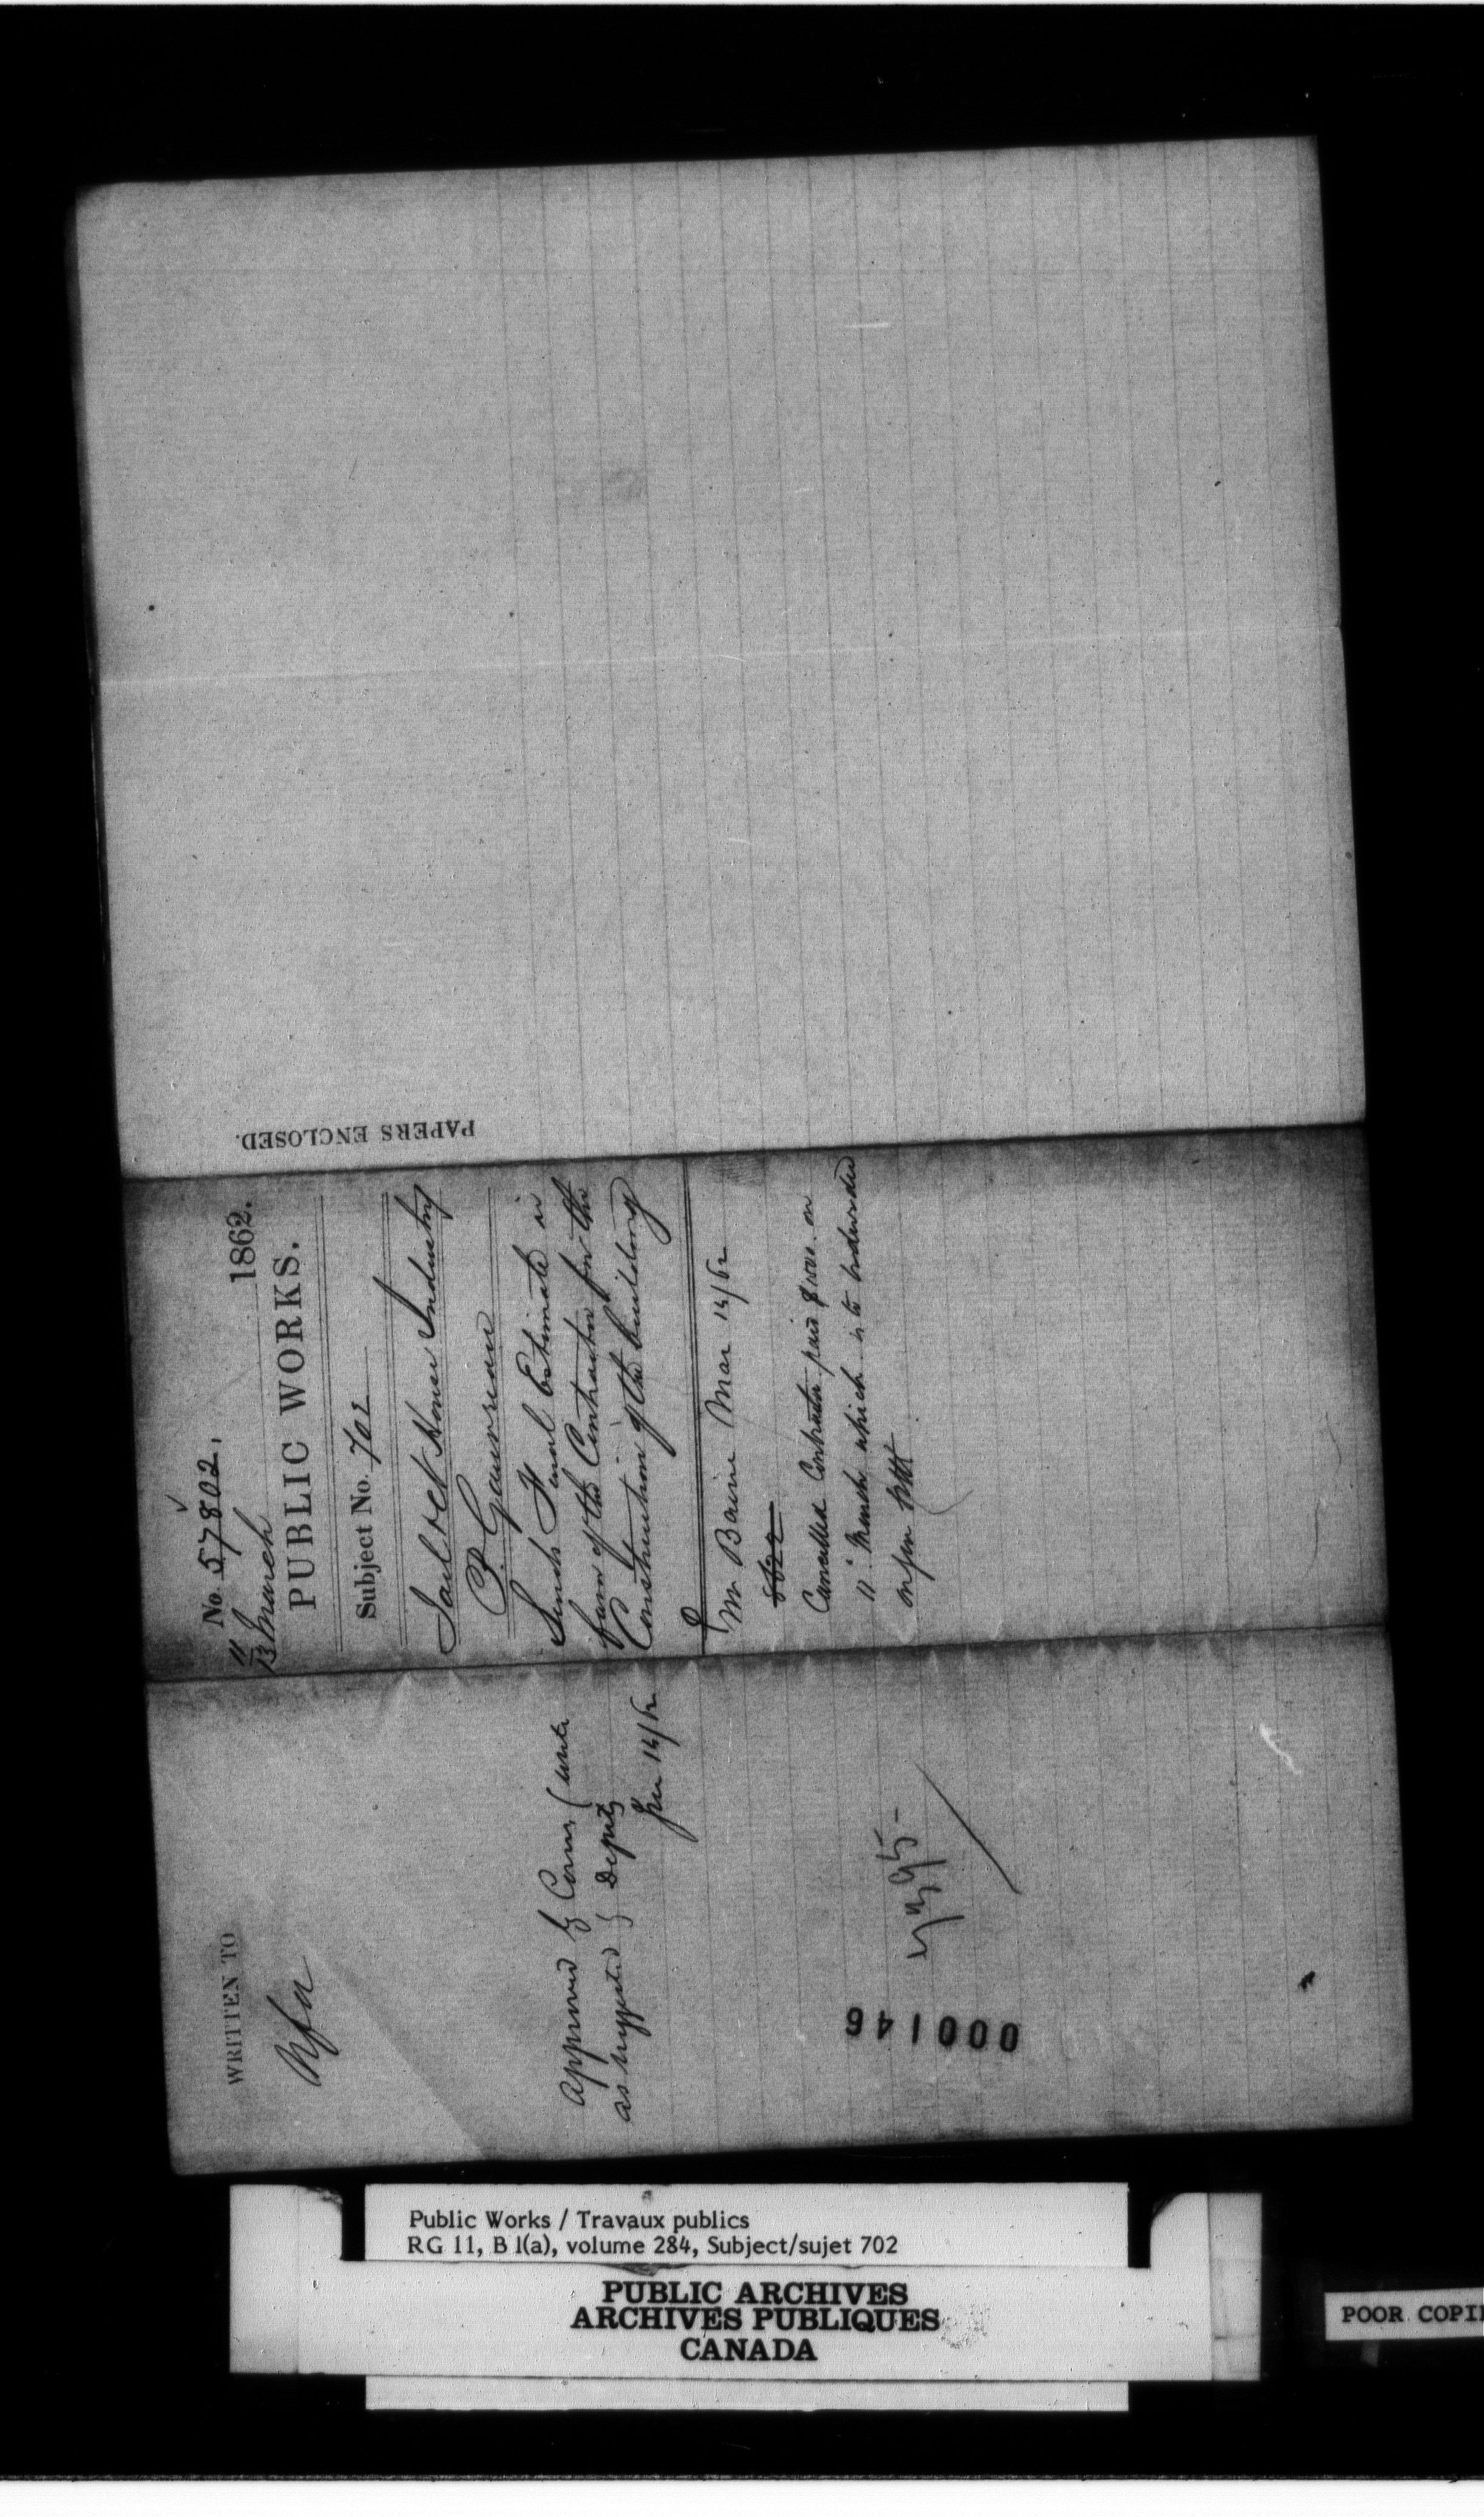 PAPERS ENCLOSED.
No. 57802.
11
13 March 1862.
PUBLIC WORKS.
Subject No. 702
Court House Industry
P. Gauvreau
Sends Final Estimate in
favor of the Contractor for the
Construction of the building
Mr Baine Mar 14/62
Cancelled Contractor paid $1000. on
11 March which is to
WRITTEN TO
Approved by Comr (write
as suggested } Deputy
14/62
000146
Public Works / Travaux publics
RG 11, B 1(a), volume 284, Subject/sujet 702
PUBLIC ARCHIVES
ARCHIVES PUBLIQUES
CANADA
POOR COPI